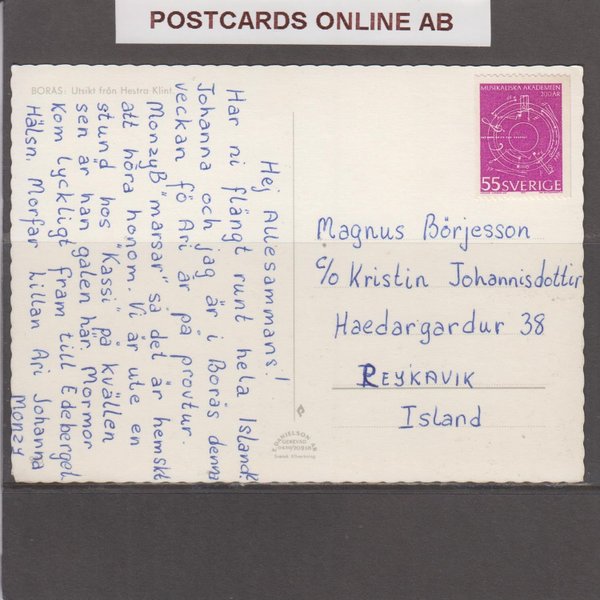 POSTCARDS ONLINE AB
BORÅS: Utsikt från Hestra Klint
Hej Allesammans!
Har ni flängt runt hela Island?
Johanna och jag är i Borås denna
veckan fö Ari är på provtur.
MonzyB "marsar" så det är hemskt
att höra honom. Vi är ute en
stund hos "Kassi" på kvällen
sen är han galen här. Mormor
kom lyckligt fram till Edeberget
Hälsn. Morfar Lillan Ari Johanna
Monzy
MUSIKALISKA AKADEMIEN
200 ÅR
55 SVERIGE
Magnus Börjesson
c/o Kristin Johannisdottir
Haedargardur 38
REYKAVIK
Island
DANIELSON AB